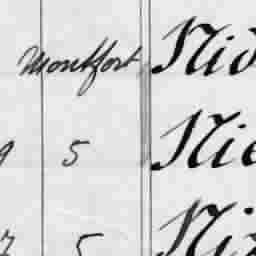 Montfort Nid
9 5 Nie
7 5 Nix